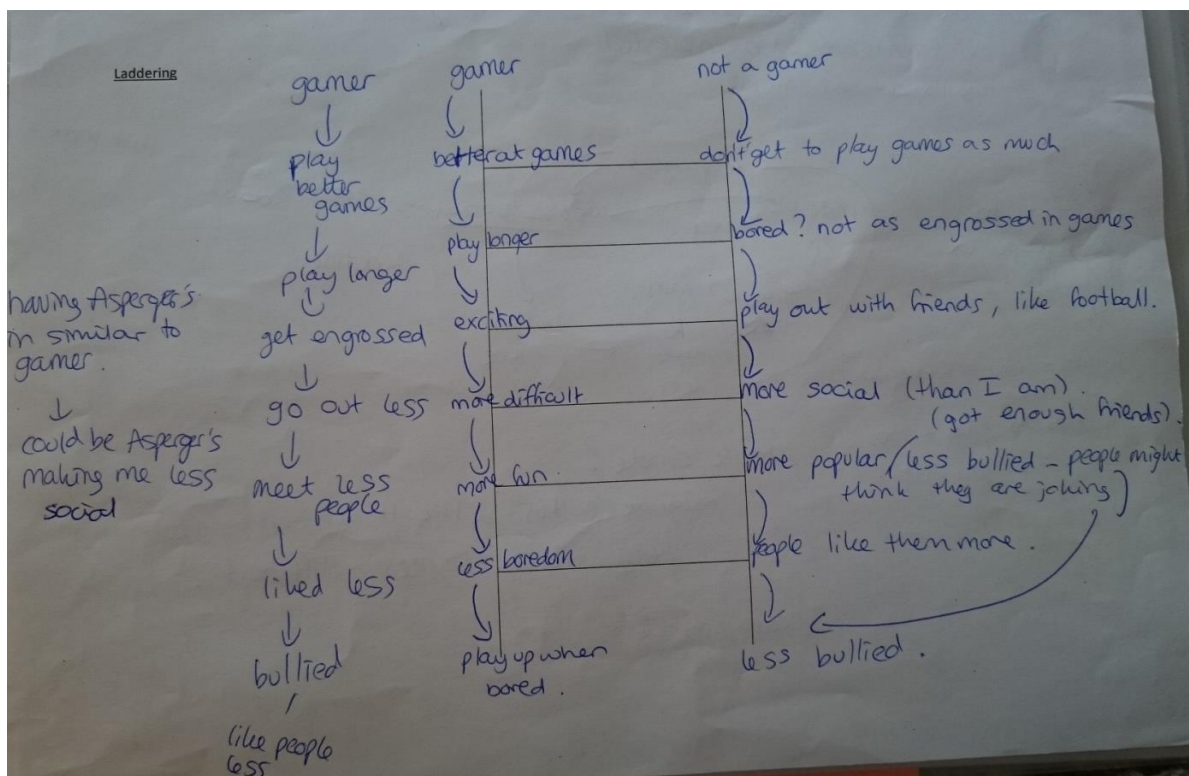 Laddering
having Asperger's
in similar to
gamer.
could be Asperger's
making me less
social
gamer
play
better
games
play longer
get engrossed
go out less
meet less
people
liked less
bullied
like people
less
gamer
better at games
play longer
exciting
more difficult
more fun
less boredom
play up when
bored.
not a gamer
don't get to play games as much
bored? not as engrossed in games
play out with friends, like football.
more social (than I am).
(got enough friends).
more popular (less bullied - people might
think they are joking)
people like them more.
less bullied.